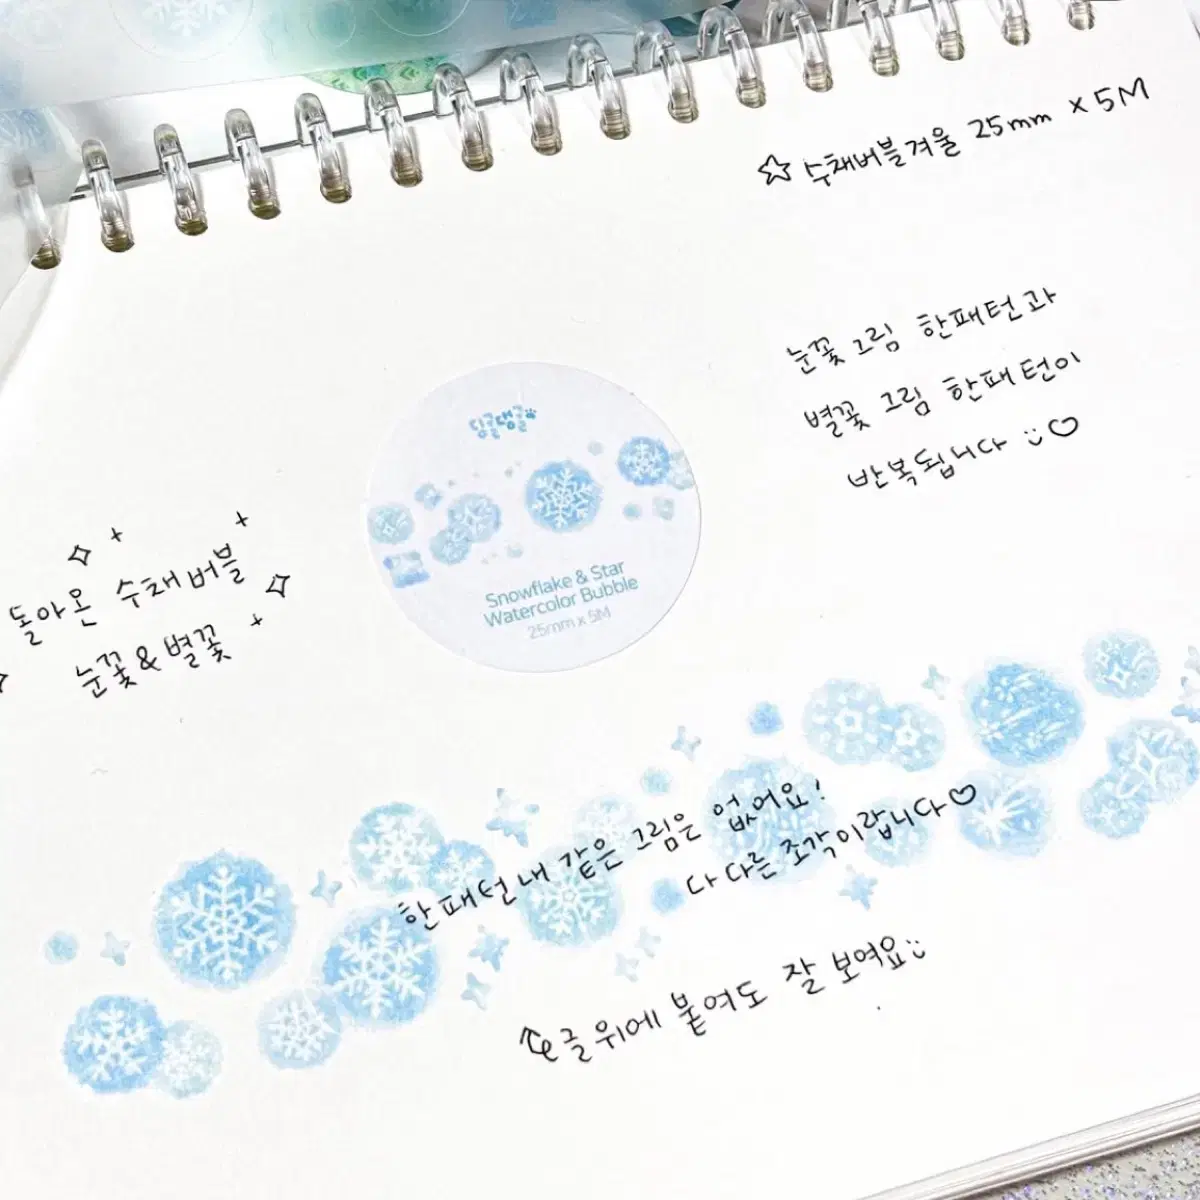 ☆ 수채버블겨울 25mm x 5M
눈꽃 그림 한패턴과
별꽃 그림 한패턴이
반복됩니다 ♡
딩글댕글
Snowflake & Star
Watercolor Bubble
25mm x 5M
돌아온 수채버블
눈꽃&별꽃
한패턴내 같은 그림은 없어요!
다 다른 조각이랍니다♡
글 위에 붙여도 잘 보여요